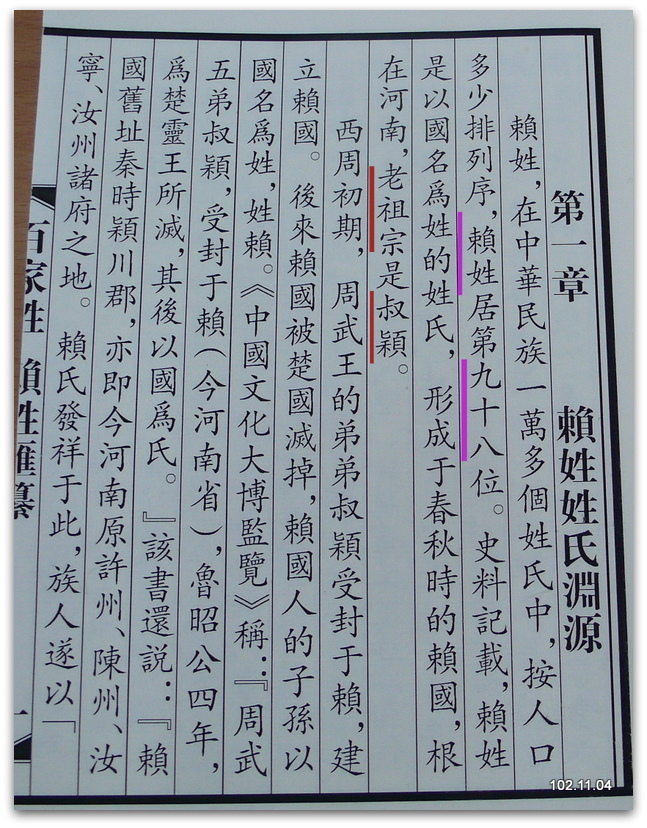 第一章 賴姓姓氏淵源
賴姓,在中華民族一萬多個姓氏中,按人口
多少排列序,賴姓居第九十八位。史料記載,賴姓
是以國名爲姓的姓氏,形成于春秋時的賴國,根
在河南,老祖宗是叔穎。
西周初期,周武王的弟弟叔穎受封于賴,建
立賴國。後來賴國被楚國滅掉,賴國人的子孫以
國名爲姓,姓賴。《中國文化大博監覽》稱:『周武
五弟叔穎,受封于賴(今河南省),魯昭公四年,
爲楚靈王所滅,其後以國爲氏。』該書還説:『賴
國舊址秦時穎川郡,亦即今河南原許州、陳州、汝
寧、汝州諸府之地。賴氏發祥于此,族人遂以「
百家姓 賴姓匯纂
一
102.11.04